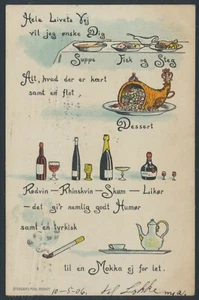 Hele Livets Vej
vil jeg ønske Dig
Suppe Fisk og Steg
Alt, hvad der er kært
samt en flot,
Dessert
Rødvin – Rhinskvin – Skum – Likør
– det gi'r nemlig godt Humør
samt en tyrkisk
til en Mokka ej for tet.
10-5-06.